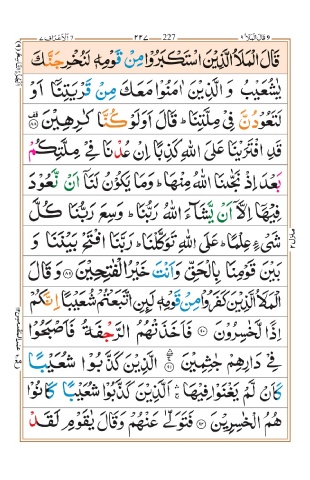 قال الملا ٩ 227 ٢٢٧ الاعراف ٧
قَالَ الْمَلَاُ الَّذِيْنَ اسْتَكْبَرُوْا مِنْ قَوْمِهٖ لَنُخْرِجَنَّكَ
يٰشُعَيْبُ وَ الَّذِيْنَ اٰمَنُوْا مَعَكَ مِنْ قَرْيَتِنَاۤ اَوْ
لَتَعُوْدُنَّ فِيْ مِلَّتِنَا ؕ قَالَ اَوَلَوْ كُنَّا كٰرِهِيْنَ ۟ قف ٨٨
قَدِ افْتَرَيْنَا عَلَى اللّٰهِ كَذِبًا اِنْ عُدْنَا فِيْ مِلَّتِكُمْ
بَعْدَ اِذْ نَجّٰىنَا اللّٰهُ مِنْهَا ؕ وَمَا يَكُوْنُ لَنَاۤ اَنْ نَّعُوْدَ
فِيْهَاۤ اِلَّاۤ اَنْ يَّشَآءَ اللّٰهُ رَبُّنَا ؕ وَسِعَ رَبُّنَا كُلَّ
شَيْءٍ عِلْمًا ؕ عَلَى اللّٰهِ تَوَكَّلْنَا ؕ رَبَّنَا افْتَحْ بَيْنَنَا وَ
بَيْنَ قَوْمِنَا بِالْحَقِّ وَاَنْتَ خَيْرُ الْفٰتِحِيْنَ ٨٩ وَقَالَ
الْمَلَاُ الَّذِيْنَ كَفَرُوْا مِنْ قَوْمِهٖ لَئِنِ اتَّبَعْتُمْ شُعَيْبًا اِنَّكُمْ
اِذًا لَّخٰسِرُوْنَ ٩٠ فَاَخَذَتْهُمُ الرَّجْفَةُ فَاَصْبَحُوْا
فِيْ دَارِهِمْ جٰثِمِيْنَ ٩١ الَّذِيْنَ كَذَّبُوْا شُعَيْبًا
كَاَنْ لَّمْ يَغْنَوْا فِيْهَا ۚ اَلَّذِيْنَ كَذَّبُوْا شُعَيْبًا كَانُوْا
هُمُ الْخٰسِرِيْنَ ٩٢ فَتَوَلّٰى عَنْهُمْ وَقَالَ يٰقَوْمِ لَقَدْ